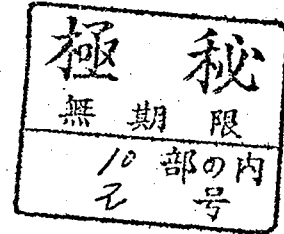 極秘
無期限
10部の内
号